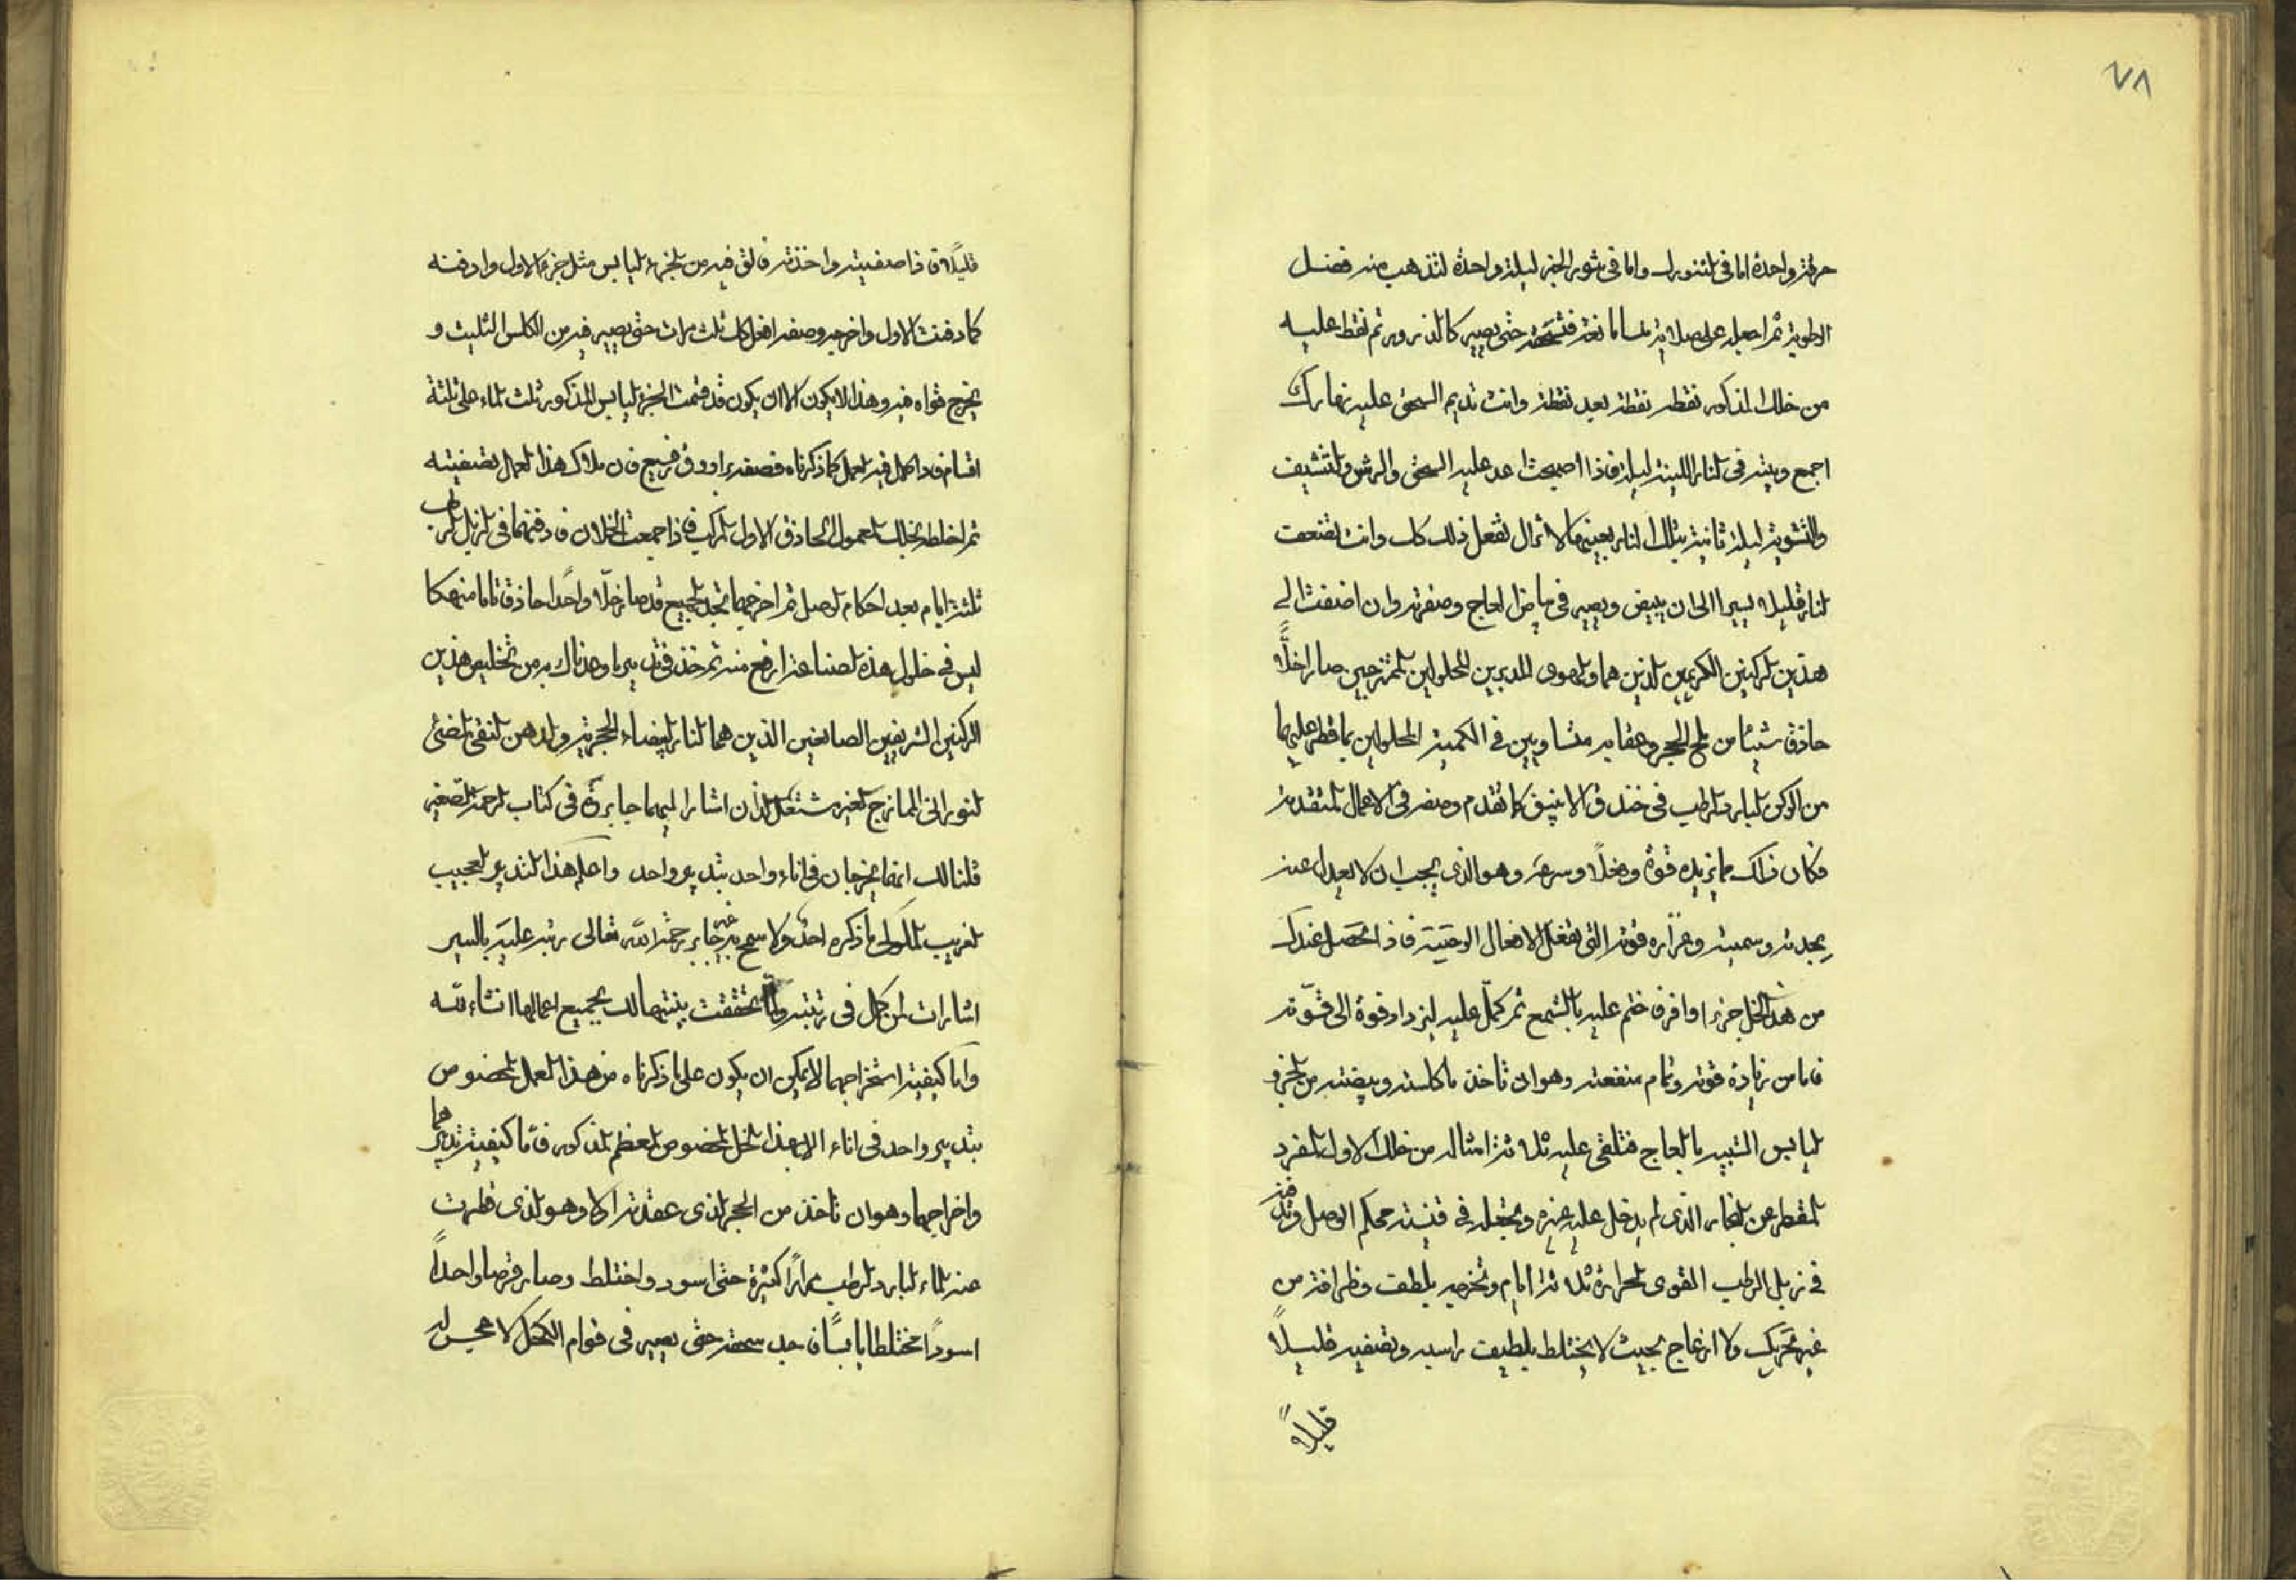 ٧٨
حرقة واحدة اما فى التنور او اما فى شور الخبز ليلة واحدة لتذهب منه فضل
الرطوبة ثم اجعله على صلاية نسا مانعة فتسحقه حتى يصير كالذرور ثم نقط عليه
من خلك المذكور نقطه نقطة بعد نقطة وانت تديم السحق عليه نهارك
اجمع وبيته فى النار اللينة ليلة فاذا اصبحت اعد عليه السحق والرش والتشيف
والتشوية ليلة ثانية بتلك النار بعينها لا تزال تفعل ذلك كك وانت
النار قليلا يسيرا الى ان يبيض ويصير فى بياض العاج وصفرته وان اضفت الى
هذين الركنين الكريمين الذين هما الهوى المدبرين المحلولين الممتزجين صارا خلًّا
حاذق شيئا من ملح الحجر وعقابه متساويين فى الكمية المحلولين بما قطر عليهما
من الركن البارد الرطب فى خندق الانبيق كما تقدم وصفه فى الاعمال المتقدمة
فكان ذلك مما يزيده قوة وخلًا وسرعة وهو الذى يجب ان لا يعدل عنه
بحدته وسميته وغزاره قوته التى تفعل الافعال الوحيتة فاذا تحصل عندك
من هذا الخل جزء وافر ف ختم عليه بالشمع ثم كمّل عليه ليزداد قوة الى قوّته
فاما من زيادة قوته وتمام منفعته وهو ان تاخذ ما كلسته وبيضته من الجزو
اليابس الشبيه بالعاج فتلقى عليه ثلاثة امثاله من خلك الاول المفرد
المقطر عن البخار الذى لم يدخل عليه غيره وتجعله فى قنينة محكم الوصل وتدفنه
فى زبل الرطب القوى الحرارة ثلاثة ايام وتخرجه بلطف وظرافة من
غير تحريك ولا ازعاج بحيث لا يختلط بلطيف راسبه وتصفيه قليلًا
قليلًا
قليلًا فاذا صفيته واخذته فالق فيه من الجزء اليابس مثل جزء الاول وادفنه
كما دفنت الاول واخرجه وصفه افعل كك ثلث مرات حتى يصير فيه من الكلس الثليث و
يخرج قواه فيه وهذا لا يكون الا ان يكون قد قسمت الجزء اليابس المذكور ثلث الماء على ثلثة
اقسام فاذا كمل فيه العمل كما ذكرناه فصفه براووق رفيع فان ملاك هذا العمل تصفيته
ثم اخلطه بخلك المعمول الحاذق الاول المركب فاذا جمعت الخلان فادفنهما فى الزبل الرطب
ثلثة ايام بعد احكام الوصل ثم اخرجهما تجد الجميع قد صار خلًّا واحدًا حاذقا تاما منهكا
ليس فى خلول هذه الصناعة ارفع منه ثم خذ فى تدبير ما وعدناك به من تخليص هذين
الركنين الشريفين الصابغين الذين هما النار البيضاء الحجرية والدهن النقى المضئ
النورانى الممازج لغيره مشتعل اللذان اشار اليهما جابر فى كتاب الرحمة الصغير
قلنا لك انهما يخرجان فى اناء واحد بتدبير واحد واعلم هذا التدبير العجيب
الغريب الملوكى ما ذكره احد ولا سمح به غير جابر رحمة الله تعالى نبه عليه باليسير
اشارات لمن كمل فى رتبته ولمّا تحققت بينتها لك بجميع اعمالها انشاء الله
واما كيفية استخراجهما لا يمكن ان يكون على ما ذكرناه من هذا العمل المخصوص
بتدبير واحد فى اناء الا بهذا الخل المخصوص المعظم المذكور فاما كيفية تدبيرهما
واخراجهما وهو ان تاخذ من الحجر الذى عقدته اولا وهو الذى قطرت
عنه الماء البارد الرطب مرارًا كثيرة حتى اسود واختلط وصار قرصا واحدًا
اسودًا مختلطا يابسًا فاجد سحقه حتى يصير فى قوام الكحل لا مجس له